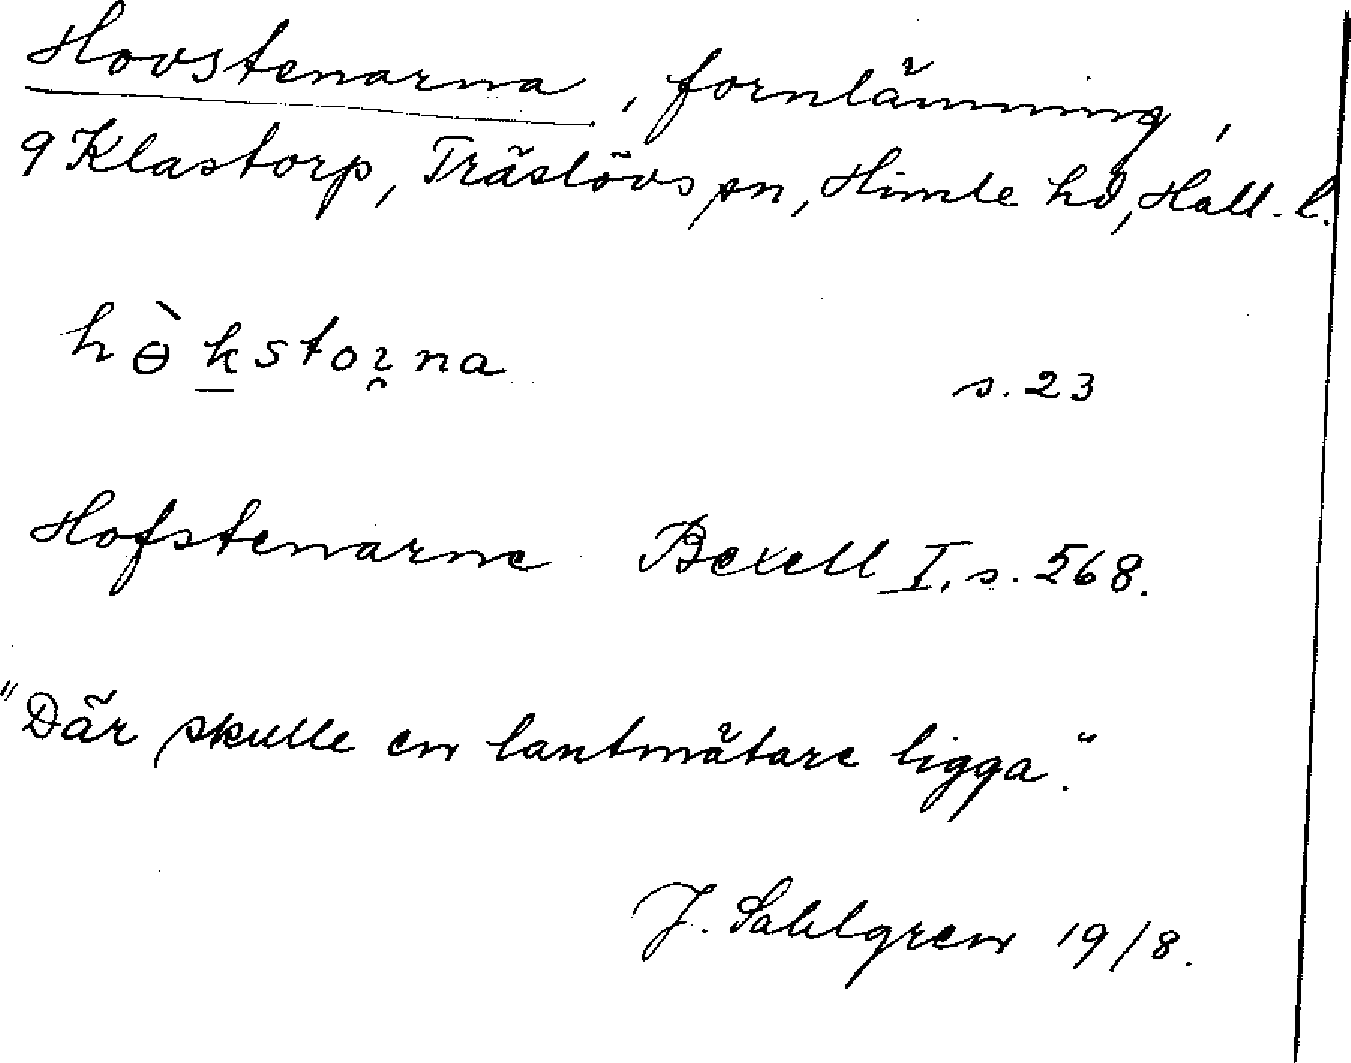 Hovstenarna, fornlämning,
9 Klastorp, Träslövs sn, Himle hd, Hall. l.
hɵ̀k̲stoɿ̯na
s. 23
Hofstenarne Bexell I, s. 568.
"Där skulle en lantmätare ligga".
J. Sahlgren 19/8.